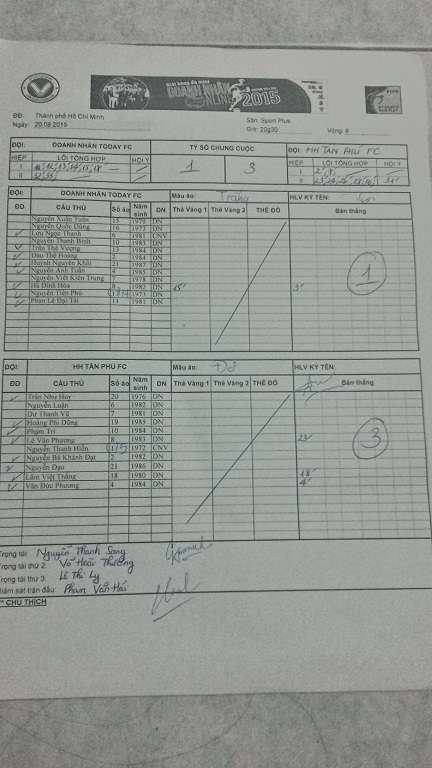 Giải bóng đá mini
DOANH NHÂN
2015
FIFA
ĐĐ: Thành phố Hồ Chí Minh
Ngày: 20.08.2015
Sân: Sport Plus
Giờ: 20g30 Vòng: 8
ĐỘI: DOANH NHÂN TODAY FC TỶ SỐ CHUNG CUỘC ĐỘI: HH TÂN PHÚ FC
HIỆP LỖI TỔNG HỢP HỘI Ý 1 3 HIỆP LỖI TỔNG HỢP HỘI Ý
I
II
ĐỘI: DOANH NHÂN TODAY FC Màu áo: Trắng HLV KÝ TÊN:
ĐD CẦU THỦ Số áo Năm sinh DN Thẻ Vàng 1 Thẻ Vàng 2 THẺ ĐỎ Bàn thắng
Nguyễn Xuân Tuấn 15 1979 DN
Nguyễn Quốc Dũng 16 1977 DN
Lưu Ngọc Thanh 6 1981 CNV
Nguyễn Thanh Bình 10 1983 DN
Trần Thế Vượng 13 1984 DN
Đào Thế Hoàng 2 1984 DN
Huỳnh Nguyên Khôi 21 1987 DN
Nguyễn Anh Tuấn 4 1985 DN
Nguyễn Viết Kiên Trung 7 1978 DN
Hà Đình Hòa 8 1982 DN 15' 3'
Nguyễn Tiến Phú 1973 DN
Phan Lê Đại Tài 11 1981 DN
1
ĐỘI: HH TÂN PHÚ FC Màu áo: Đỏ HLV KÝ TÊN:
ĐD CẦU THỦ Số áo Năm sinh DN Thẻ Vàng 1 Thẻ Vàng 2 THẺ ĐỎ Bàn thắng
Trần Như Huy 20 1976 DN
Nguyễn Luận 6 1982 DN
Dư Thanh Vũ 7 1981 DN
Hoàng Phi Dũng 19 1985 DN
Phạm Trí 10 1984 DN
Lê Văn Phương 8 1983 DN 23'
Nguyễn Thanh Hiền 1972 CNV
Nguyễn Bá Khánh Đạt 2 1982 DN
Nguyễn Đạo 21 1986 DN
Lâm Việt Thắng 18 1980 DN 18'
Văn Đức Phương 4 1984 DN 4'
3
Trọng tài: Nguyễn Thanh Sang
Trọng tài thứ 2: Võ Hoài Thương
Trọng tài thứ 3: Lê Thi Ly
Giám sát trận đấu: Phan Văn Hải
** CHÚ THÍCH